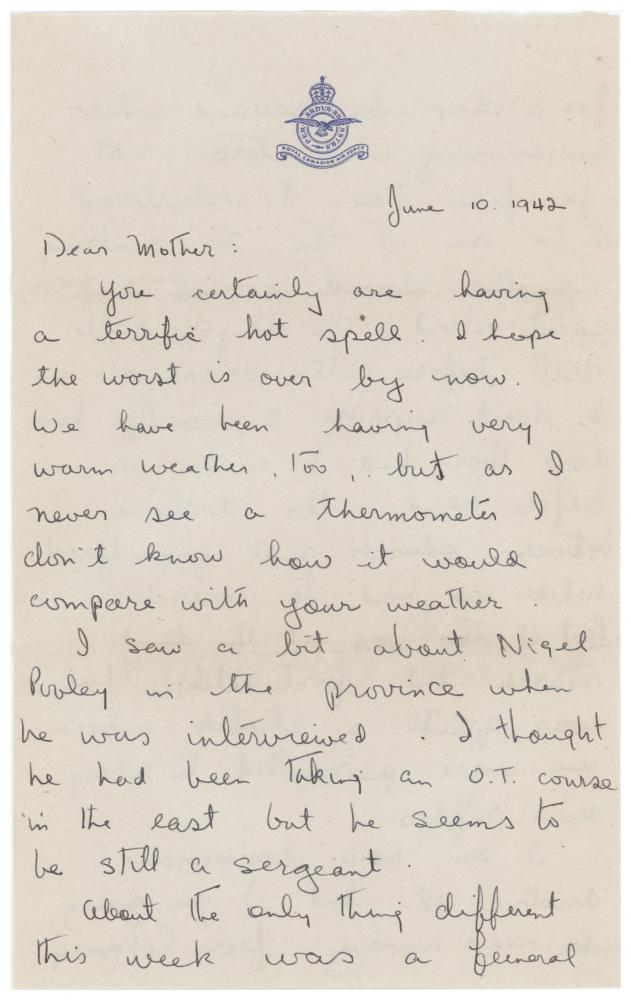 PER ARDUA AD ASTRA
ROYAL CANADIAN AIR FORCE
June 10. 1942
Dear Mother:
You certainly are having
a terrific hot spell. I hope
the worst is over by now.
We have been having very
warm weather, too, but as I
never see a thermometer I
don't know how it would
compare with your weather.
I saw a bit about Nigel
Pooley in the province when
he was interviewed. I thought
he had been taking an O.T. course
in the east but he seems to
be still a sergeant.
About the only thing different
this week was a funeral